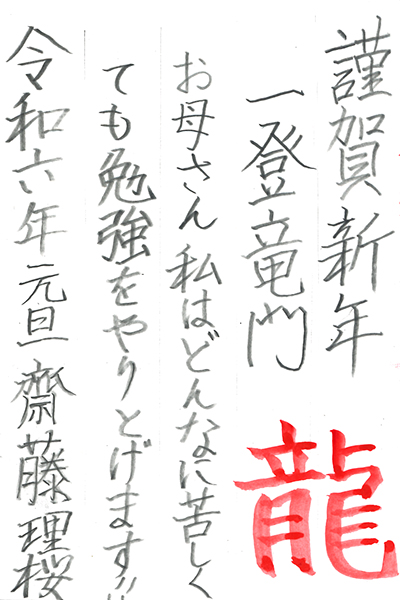 謹賀新年
一登竜門
龍
お母さん私はどんなに苦しく
ても勉強をやりとげます!!
令和六年元旦 齋藤理桜